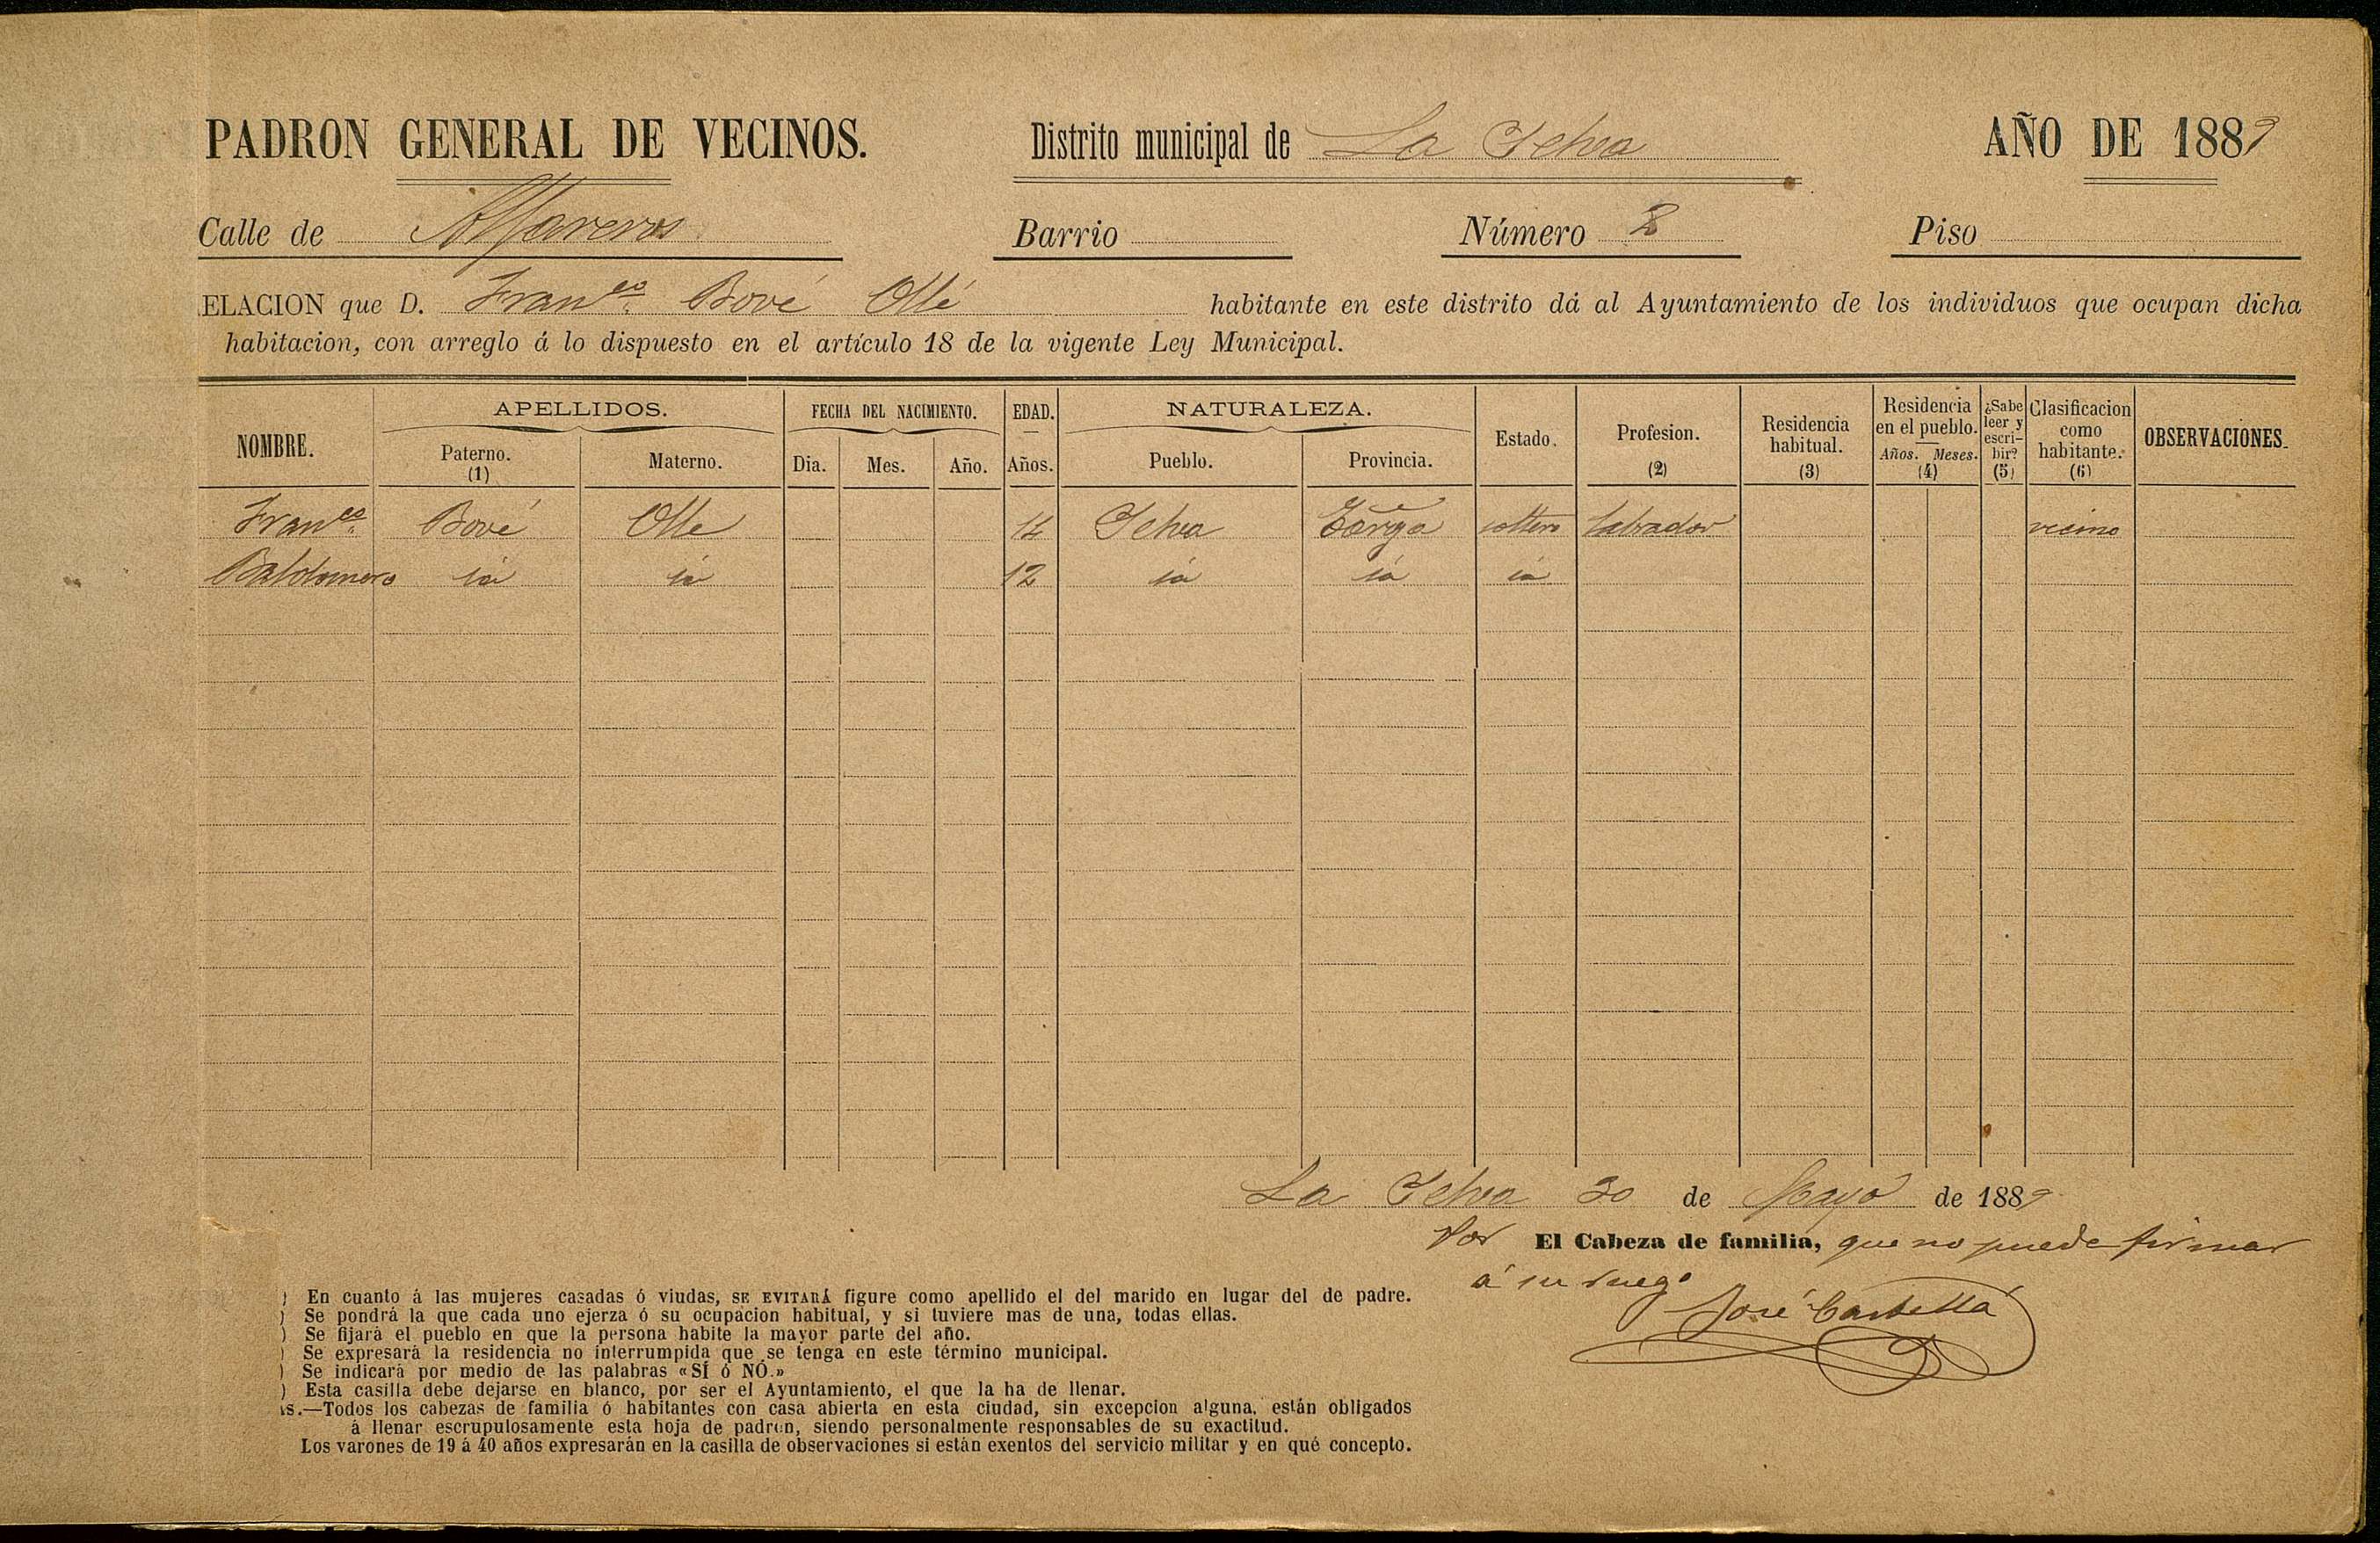 PADRON GENERAL DE VECINOS. Distrito municipal de La Selva AÑO DE 1889
Calle de Alfareros Barrio Número 2 Piso
ELACION que D. Fran.co Bové Ollé habitante en este distrito dá al Ayuntamiento de los individuos que ocupan dicha
habitacion, con arreglo á lo dispuesto en el artículo 18 de la vigente Ley Municipal.
NOMBRE. APELLIDOS. Paterno. (1) Materno. FECHA DEL NACIMIENTO. Dia. Mes. Año. EDAD. Años. NATURALEZA. Pueblo. Provincia. Estado. Profesion. (2) Residencia habitual. (3) Residencia en el pueblo. Años. Meses. (4) ¿Sabe leer y escri-bir? (5) Clasificacion como habitante. (6) OBSERVACIONES.
Fran.co Bové Olle Selva soltero labrador vecino
Baldomero id id 12 id id id
La Selva 30 de Mayo de 1889
Por El Cabeza de familia, que no puede firmar
á su ruego
José Carbellá
) En cuanto á las mujeres casadas ó viudas, SE EVITARÁ figure como apellido el del marido en lugar del de padre.
) Se pondrá la que cada uno ejerza ó su ocupacion habitual, y si tuviere mas de una, todas ellas.
) Se fijará el pueblo en que la persona habite la mayor parte del año.
) Se expresará la residencia no interrumpida que se tenga en este término municipal.
) Se indicará por medio de las palabras «SÍ ó NÓ.»
) Esta casilla debe dejarse en blanco, por ser el Ayuntamiento, el que la ha de llenar.
s.—Todos los cabezas de familia ó habitantes con casa abierta en esta ciudad, sin excepcion alguna, están obligados
á llenar escrupulosamente esta hoja de padron, siendo personalmente responsables de su exactitud.
Los varones de 19 á 40 años expresarán en la casilla de observaciones si están exentos del servicio militar y en qué concepto.